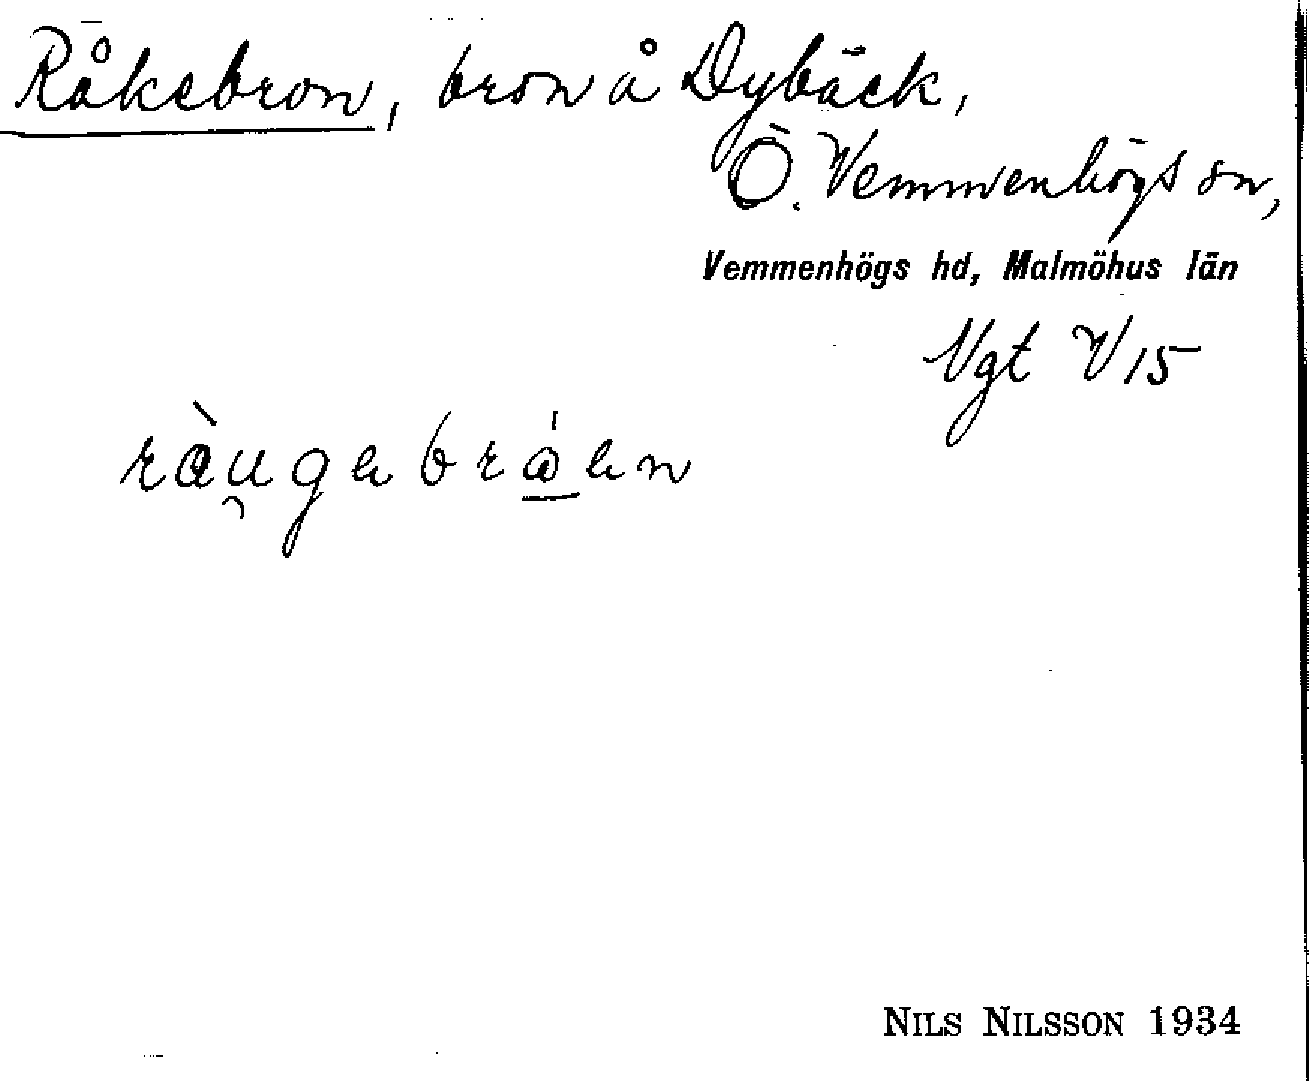 Råkebron, bron å Dybäck,
Ö. Vemmenhögs sn,
Vemmenhögs hd, Malmöhus län
Vgt V15
ràu̯gabrǻ̲an
NILS NILSSON 1934